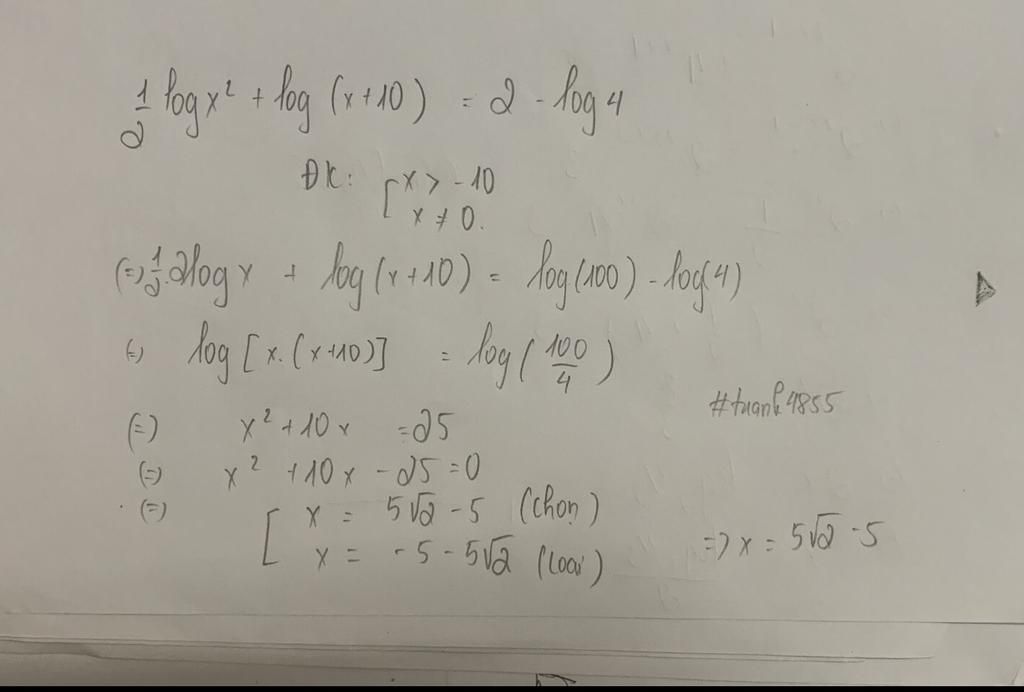 1/2 log x² + log (x+10) = 2 - log 4
ĐK: [ x > -10
x ≠ 0.
(=) 1/2 . 2log x + log (x+10) = log(100) - log(4)
(=) log [x. (x+10)] = log (100/4)
#tuanh4855
(=) x² + 10x = 25
(=) x² + 10x - 25 = 0
(=) [ x = 5√2 - 5 (chọn)
x = -5 - 5√2 (loại) => x = 5√2 - 5